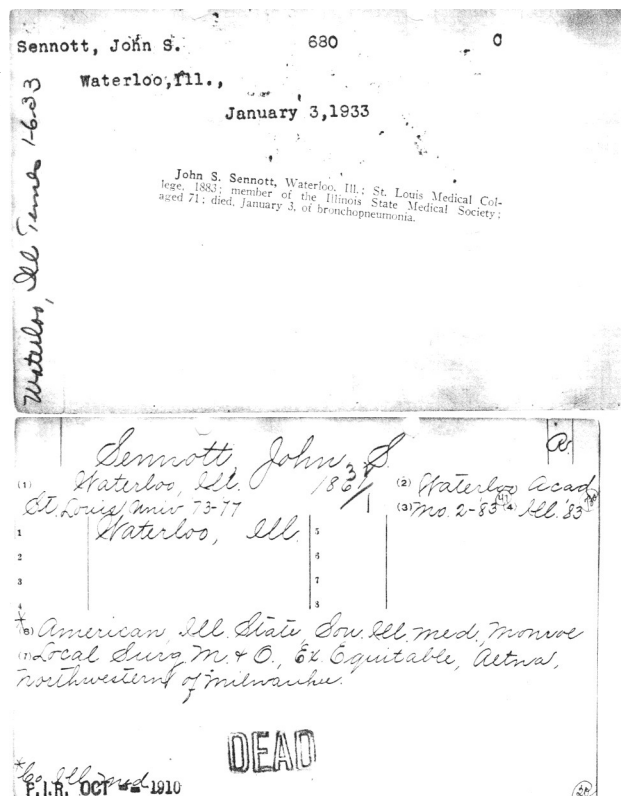 Sennott, John S. 680 C
Waterloo,Ill.,
January 3,1933
John S. Sennott, Waterloo, Ill.; St. Louis Medical Col-
lege, 1883; member of the Illinois State Medical Society;
aged 71; died, January 3, of bronchopneumonia.
Waterloo, Ill Times 1-6-33
Sennott, John S.
(1) Waterloo, Ill. 1861
(2) Waterloo Acad
St. Louis Univ 73-77
(3) Mo. 2-83 (4) Ill. '83
1 Waterloo, Ill. 5
2 6
3 7
4 8
*(6) American, Ill. State, Sou. Ill. med, Monroe
(7) Local Surg. M. & O., Ex. Equitable, Aetna,
Northwestern of Milwaukee.
DEAD
*Co. Ill. Med
P.I.R. OCT 1910